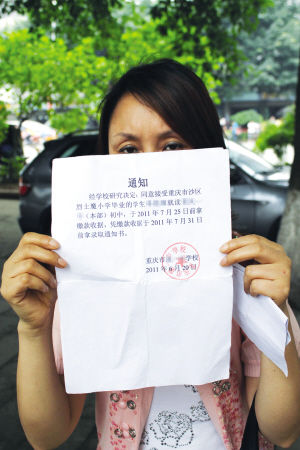 通知
经学校研究决定，同意接受重庆市沙区
烈士魔小学毕业的学生 就读
（本部）初中，于2011年7月25日前拿
缴款收据，凭缴款收据于2011年7月31日
前拿录取通知书。
重庆市 学校
2011年6月20日
学校